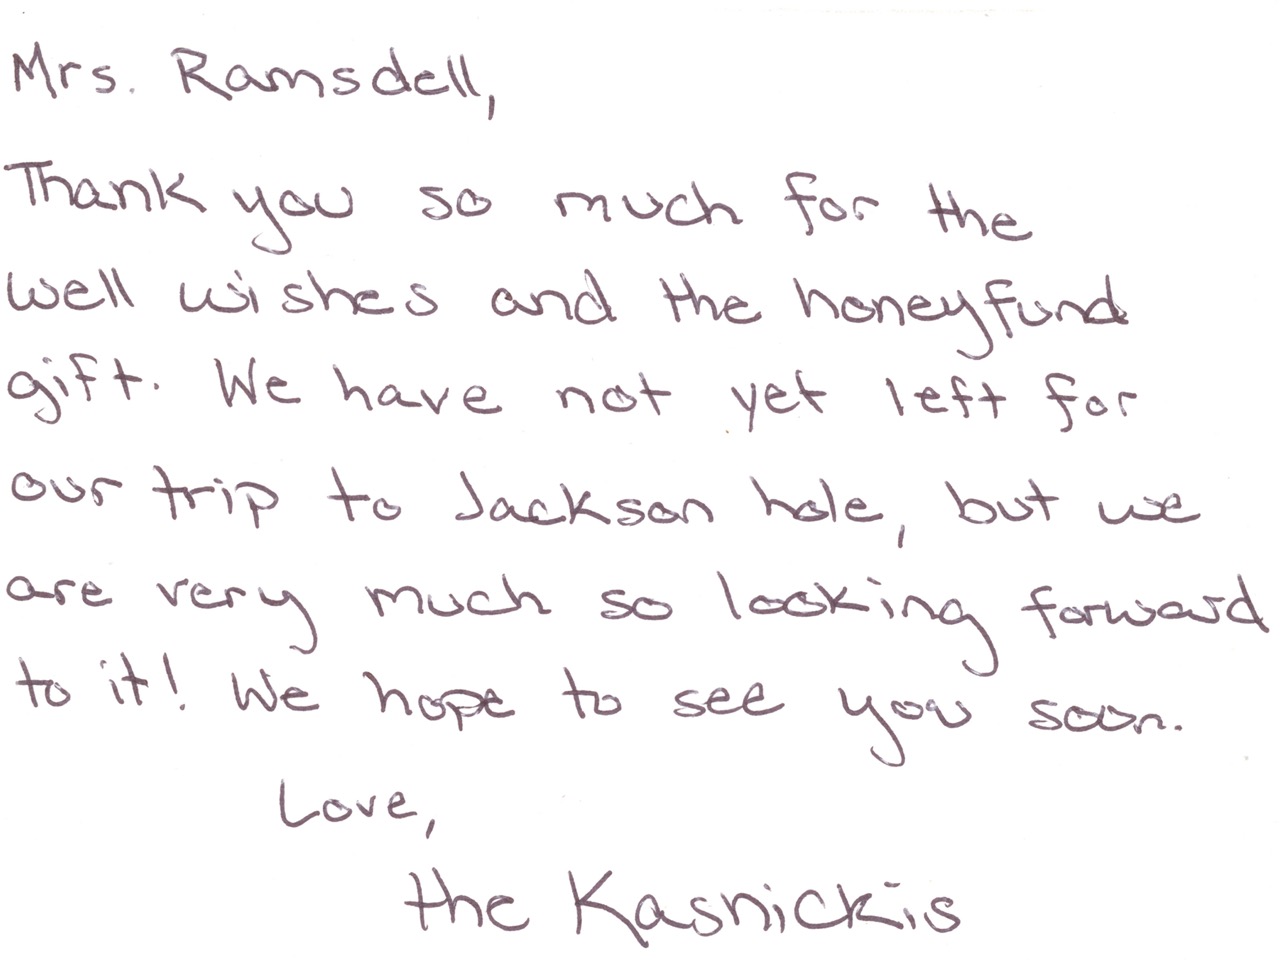 Mrs. Ramsdell,
Thank you so much for the
well wishes and the honeyfund
gift. We have not yet left for
our trip to Jackson hole, but we
are very much so looking forward
to it! We hope to see you soon.
Love,
the Kasnickis